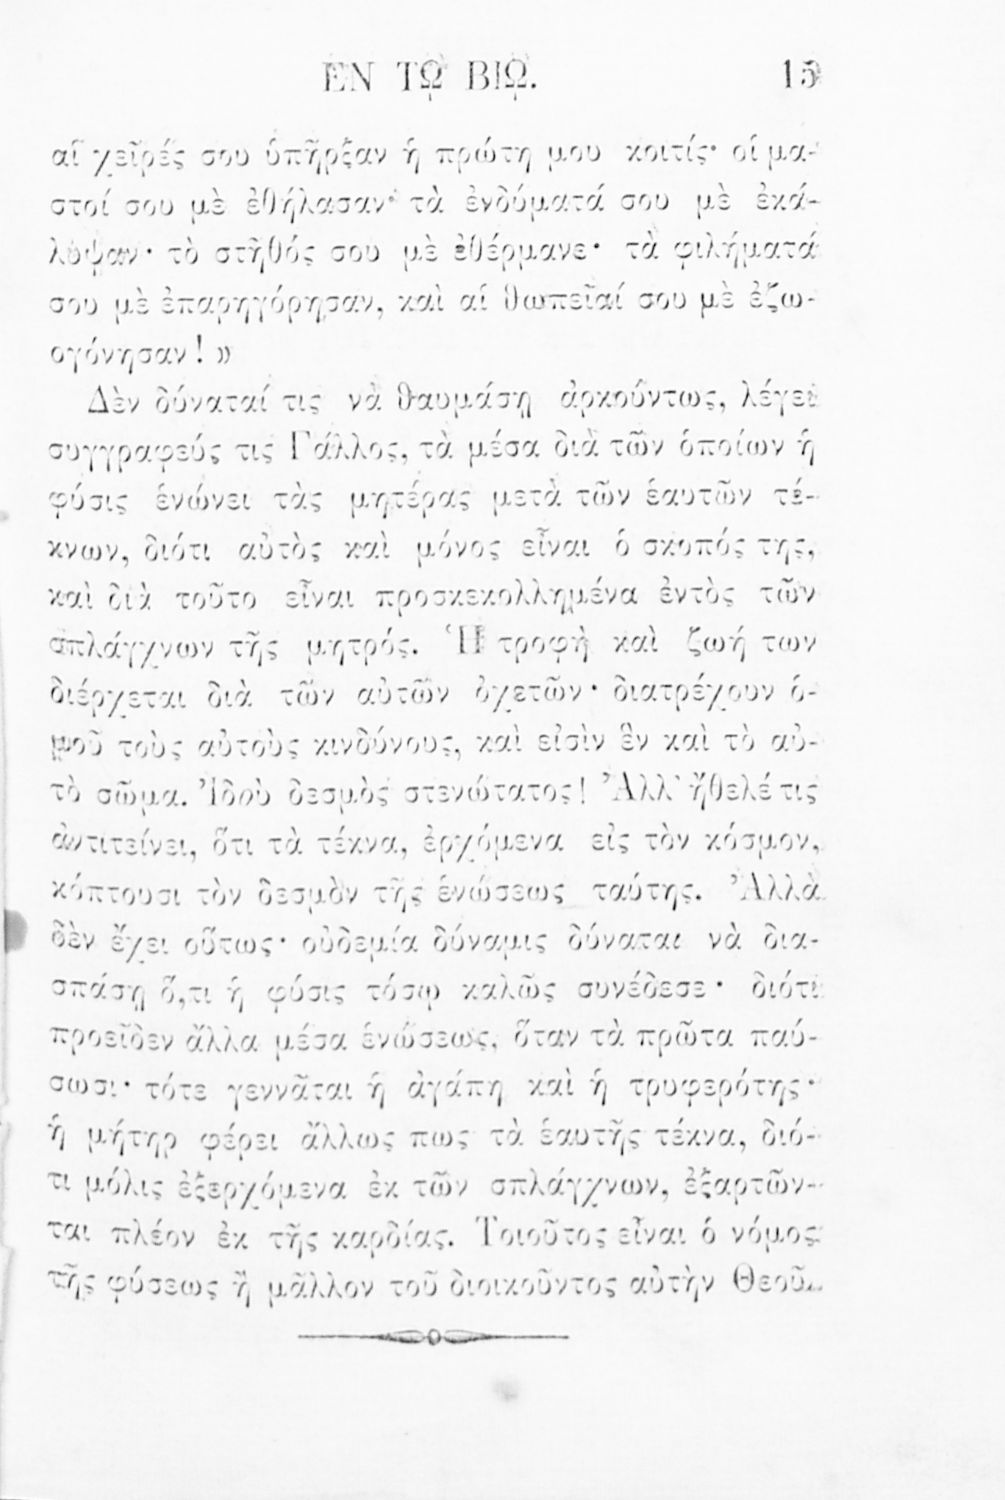 ΕΝ ΤΩ ΒΙΩ. 15
αἱ χεῖρές σου ὑπῆρξαν ἡ πρώτη μου κοιτίς· οἱ μα-
στοί σου μὲ ἐθήλασαν· τὰ ἐνδύματά σου μὲ ἐκά-
λυψαν· τὸ στῆθός σου μὲ ἐθέρμανε· τὰ φιλήματά
σου μὲ ἐπαρηγόρησαν, καὶ αἱ θωπεῖαί σου μὲ ἐζω-
ογόνησαν! »
Δὲν δύναταί τις νὰ θαυμάσῃ ἀρκούντως, λέγει
συγγραφεύς τις Γάλλος, τὰ μέσα διὰ τῶν ὁποίων ἡ
φύσις ἑνώνει τὰς μητέρας μετὰ τῶν ἑαυτῶν τέ-
κνων, διότι αὐτὸς καὶ μόνος εἶναι ὁ σκοπός της,
καὶ διὰ τοῦτο εἶναι προσκεκολλημένα ἐντὸς τῶν
σπλάγχνων τῆς μητρός. Ἡ τροφὴ καὶ ζωή των
διέρχεται διὰ τῶν αὐτῶν ὀχετῶν· διατρέχουν ὁ-
μοῦ τοὺς αὐτοὺς κινδύνους, καὶ εἰσὶν ἓν καὶ τὸ αὐ-
τὸ σῶμα. Ἰδοὺ δεσμὸς στενώτατος! Ἀλλ' ἤθελέ τις
ἀντιτείνει, ὅτι τὰ τέκνα, ἐρχόμενα εἰς τὸν κόσμον,
κόπτουσι τὸν δεσμὸν τῆς ἑνώσεως ταύτης. Ἀλλὰ
δὲν ἔχει οὕτως· οὐδεμία δύναμις δύναται νὰ δια-
σπάσῃ ὅ,τι ἡ φύσις τόσῳ καλῶς συνέδεσε· διότι
προεῖδεν ἄλλα μέσα ἑνώσεως, ὅταν τὰ πρῶτα παύ-
σωσι· τότε γεννᾶται ἡ ἀγάπη καὶ ἡ τρυφερότης·
ἡ μήτηρ φέρει ἄλλως πως τὰ ἑαυτῆς τέκνα, διό-
τι μόλις ἐξερχόμενα ἐκ τῶν σπλάγχνων, ἐξαρτῶν-
ται πλέον ἐκ τῆς καρδίας. Τοιοῦτος εἶναι ὁ νόμος
τῆς φύσεως ἢ μᾶλλον τοῦ διοικοῦντος αὐτὴν Θεοῦ.